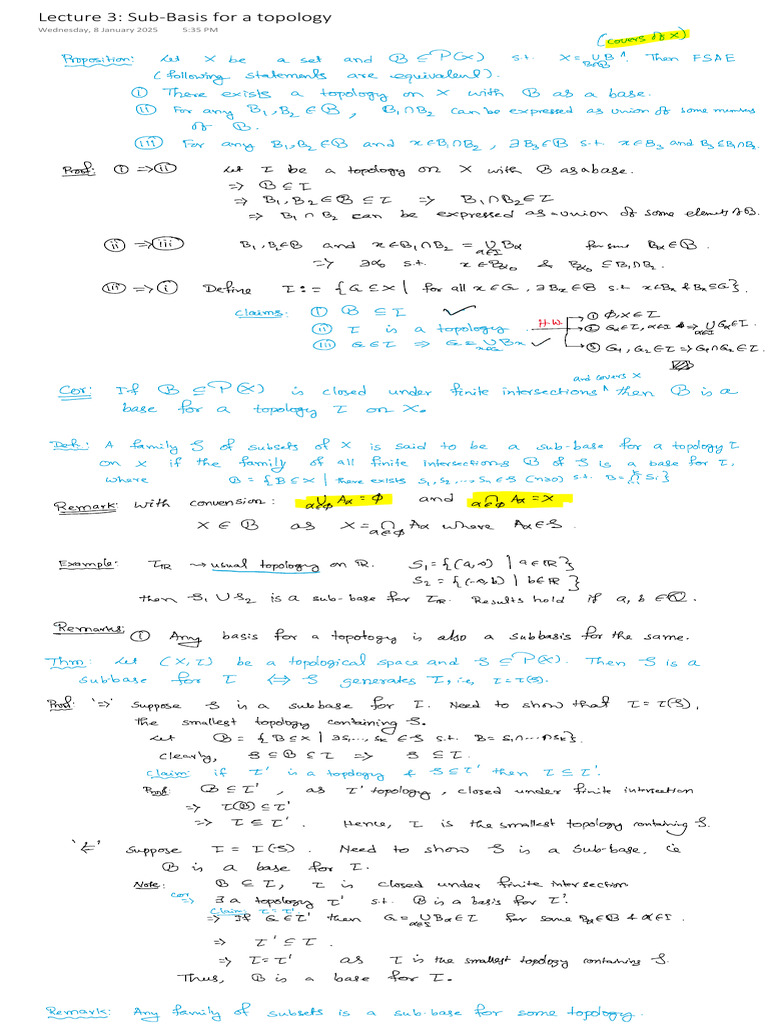 Lecture 3: Sub-Basis for a topology
Wednesday, 8 January 2025 5:35 PM
(covers of X)
Proposition: Let X be a set and ℬ ⊆ P(X) s.t. X = ∪_{B∈ℬ} B ^. Then FSAE
(following statements are equivalent).
(i) There exists a topology on X with ℬ as a base.
(ii) For any B₁, B₂ ∈ ℬ, B₁∩B₂ can be expressed as union of some members
of ℬ.
(iii) For any B₁, B₂ ∈ ℬ and x ∈ B₁∩B₂, ∃ B₃ ∈ ℬ s.t. x ∈ B₃ and B₃ ⊆ B₁∩B₂.
Proof: (i) ⇒ (ii) Let τ be a topology on X with ℬ as a base.
⇒ ℬ ⊆ τ
⇒ B₁, B₂ ∈ ℬ ⊆ τ ⇒ B₁∩B₂ ∈ τ
⇒ B₁∩B₂ can be expressed as union of some elements of ℬ.
(ii) ⇒ (iii) B₁, B₂ ∈ ℬ and x ∈ B₁∩B₂ = ∪_{α∈I} Bα for some Bα ∈ ℬ.
⇒ ∃ α₀ s.t. x ∈ Bα₀ & Bα₀ ⊆ B₁∩B₂.
(iii) ⇒ (i) Define τ := {G ⊆ X | for all x ∈ G, ∃ Bx ∈ ℬ s.t. x ∈ Bx & Bx ⊆ G}.
Claims: (i) ℬ ⊆ τ ✓
(ii) τ is a topology H.W.
(iii) G ∈ τ ⇒ G = ∪_{x∈G} Bx ✓
① φ, X ∈ τ
② Gα ∈ τ, α ∈ I ⇒ ∪_{α∈I} Gα ∈ τ.
③ G₁, G₂ ∈ τ ⇒ G₁∩G₂ ∈ τ.
and covers X
Cor: If ℬ ⊆ P(X) is closed under finite intersections ^ then ℬ is a
base for a topology τ on X.
Def: A family S of subsets of X is said to be a sub-base for a topology τ
on X if the family of all finite intersections ℬ of S is a base for τ,
where ℬ = {B ⊆ X | there exists S₁, S₂, ..., Sₙ ∈ S (n≥0) s.t. B = ∩_{i=1}^{n} Si}
Remark: With convension: ∪_{α∈φ} Aα = φ and ∩_{α∈φ} Aα = X
X ∈ ℬ as X = ∩_{α∈φ} Aα where Aα ∈ S.
Example: τ_ℝ → usual topology on ℝ. S₁ = {(a, ∞) | a ∈ ℝ}
S₂ = {(-∞, b) | b ∈ ℝ}
then S₁ ∪ S₂ is a sub-base for τ_ℝ. Results hold if a, b ∈ ℚ.
Remarks: (i) Any basis for a topology is also a subbasis for the same.
Thm: Let (X, τ) be a topological space and S ⊆ P(X). Then S is a
subbase for τ ⇔ S generates τ, i.e, τ = τ(S).
Proof: '⇒' Suppose S is a subbase for τ. Need to show that τ = τ(S),
the smallest topology containing S.
Let ℬ = {B ⊆ X | ∃ S₁, ..., Sk ∈ S s.t. B = S₁∩...∩Sk}.
Clearly, S ⊆ ℬ ⊆ τ ⇒ S ⊆ τ.
Claim: if τ' is a topology & S ⊆ τ' then τ ⊆ τ'.
Proof: ℬ ⊆ τ', as τ' topology, closed under finite intersection
⇒ τ(ℬ) ⊆ τ'
⇒ τ ⊆ τ'. Hence, τ is the smallest topology containing S.
'⇐' Suppose τ = τ(S). Need to show S is a sub-base, i.e
ℬ is a base for τ.
Note: ℬ ⊆ τ, τ is closed under finite intersection
Cor ⇒ ∃ a topology τ' s.t. ℬ is a basis for τ'.
Claim: τ = τ'
⇒ If G ∈ τ' then G = ∪_{α∈I} Bα ∈ τ for some Bα ∈ ℬ & α ∈ I.
⇒ τ' ⊆ τ.
⇒ τ = τ' as τ is the smallest topology containing S.
Thus, ℬ is a base for τ.
Remark: Any family of subsets is a sub-base for some topology.